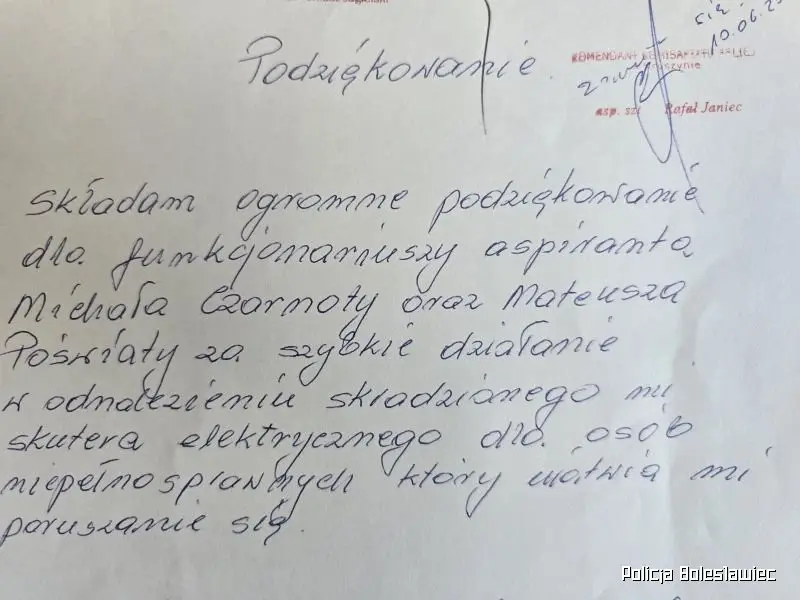 się
10.06.
Podziękowanie.
KOMENDANT KOMISARIATU POLICJI
asp. szt. Rafał Janiec
Składam ogromne podziękowanie
dla funkcjonariuszy aspiranta
Michała Czarnoty oraz Mateusza
Poświaty za szybkie działanie
w odnalezieniu skradzionego mi
skutera elektrycznego dla osób
niepełnosprawnych który ułatwia mi
poruszanie się.
Policja Bolesławiec